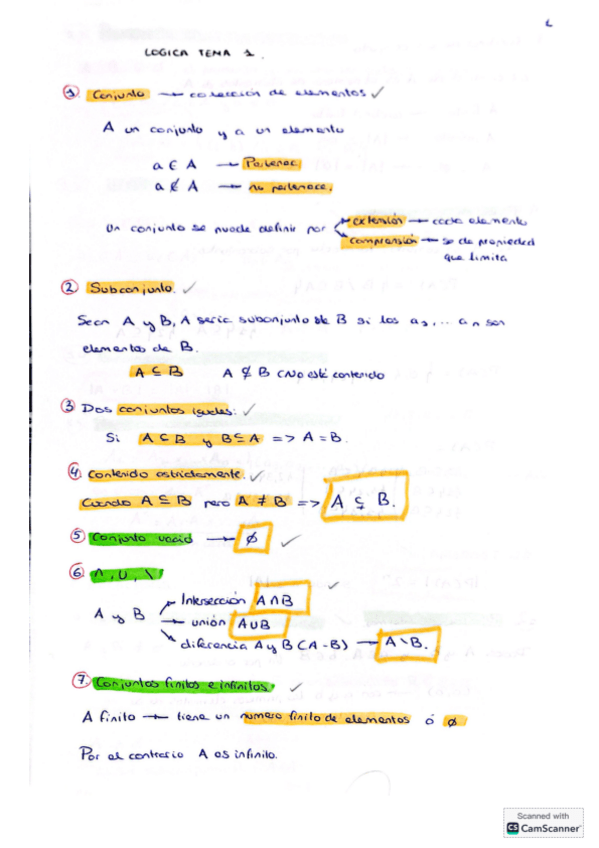 LOGICA TEMA 1.
1. Conjunto → colección de elementos ✓
A un conjunto y a un elemento
a ∈ A → Pertenece
a ∉ A → no pertenece.
Un conjunto se puede definir por
extensión → cada elemento
comprensión → se da propiedad
que limita
2 Subconjunto. ✓
Sean A y B, A sería subconjunto de B si los a₁, ... an son
elementos de B.
A ⊆ B A ⊈ B (No está contenido
3 Dos conjuntos iguales: ✓
Si A ⊆ B y B ⊆ A => A = B.
4. Contenido estrictamente. ✓
Cuando A ⊆ B pero A ≠ B => A ⊊ B.
5 Conjunto vacío → ∅ ✓
6 ∩, ∪, \ ✓
A y B
Intersección A ∩ B
unión A ∪ B
diferencia A y B (A - B) → A \ B.
7. Conjuntos finitos e infinitos. ✓
A finito → tiene un numero finito de elementos ó ∅
Por el contrario A es infinito.
Scanned with
CS CamScanner